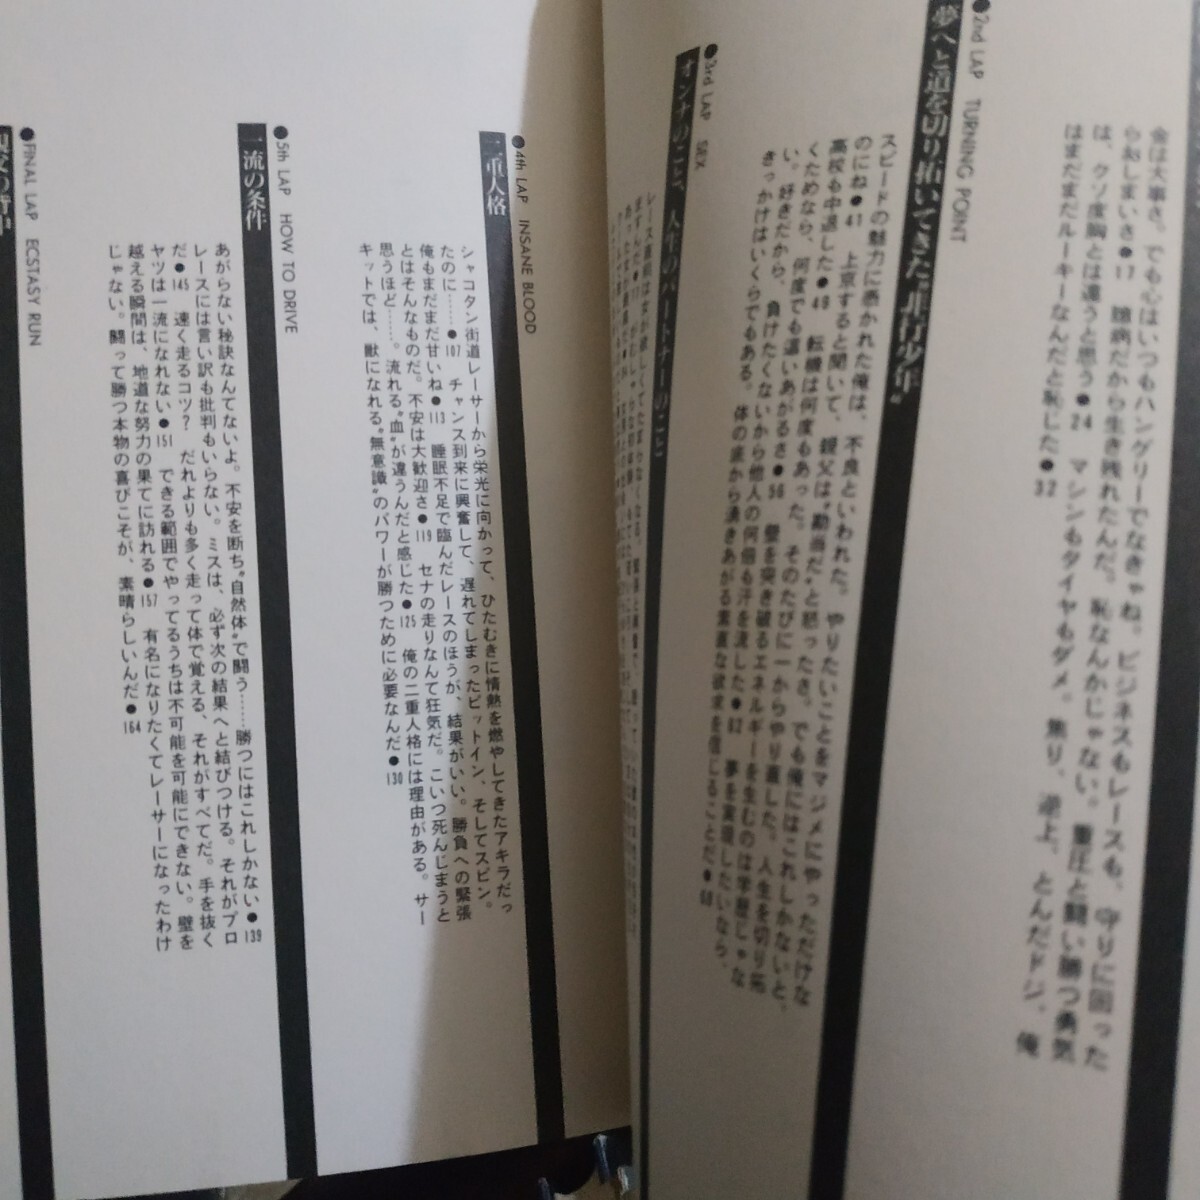 金は大事さ。でも心はいつもハングリーでなきゃね。ビジネスもレースも、守りに回った
らおしまいさ●17 臆病だから生き残れたんだ。恥なんかじゃない。重圧と闘い勝つ勇気
は、クソ度胸とは違うと思う●24 マシンもタイヤもダメ。焦り、逆上。とんだドジ、俺
はまだまだルーキーなんだと恥じた●32
●2nd LAP TURNING POINT
夢へと道を切り拓いてきた“非行少年”
スピードの魅力に憑かれた俺は、不良といわれた。やりたいことをマジメにやっただけな
のにね●41 上京すると聞いて、親父は“勘当だ”と怒ったさ。でも俺にはこれしかないと、
高校も中退した●49 転機は何度もあった。そのたびに一からやり直した。人生を切り拓
くためなら、何度でも這いあがるさ●56 壁を突き破るエネルギーを生むのは学歴じゃな
い。好きだから、負けたくないから他人の何倍も汗を流した●62 夢を実現したいなら、
きっかけはいくらでもある。体の底から湧きあがる素直な欲求を信じることだ●68
●3rd LAP SEX
オンナのこと、人生のパートナーのこと
●4th LAP INSANE BLOOD
二重人格
シャコタン街道レーサーから栄光に向かって、ひたむきに情熱を燃やしてきたアキラだっ
たのに……●107 チャンス到来に興奮して、遅れてしまったピットイン、そしてスピン。
俺もまだまだ甘いね●113 睡眠不足で臨んだレースのほうが、結果がいい。勝負への緊張
とはそんなものだ。不安は大歓迎さ●119 セナの走りなんて狂気だ。こいつ死んじまうと
思うほど……。流れる“血”が違うんだと感じた●125 俺の二重人格には理由がある。サー
キットでは、獣になれる“無意識”のパワーが勝つために必要なんだ●130
●5th LAP HOW TO DRIVE
一流の条件
あがらない秘訣なんてないよ。不安を断ち“自然体”で闘う……勝つにはこれしかない●139
レースには言い訳も批判もいらない。ミスは、必ず次の結果へと結びつける。それがプロ
だ●145 速く走るコツ? だれよりも多く走って体で覚える、それがすべてだ。手を抜く
ヤツは一流になれない●151 できる範囲でやってるうちは不可能を可能にできない。壁を
越える瞬間は、地道な努力の果てに訪れる●157 有名になりたくてレーサーになったわけ
じゃない。闘って勝つ本物の喜びこそが、素晴らしいんだ●164
●FINAL LAP ECSTASY RUN